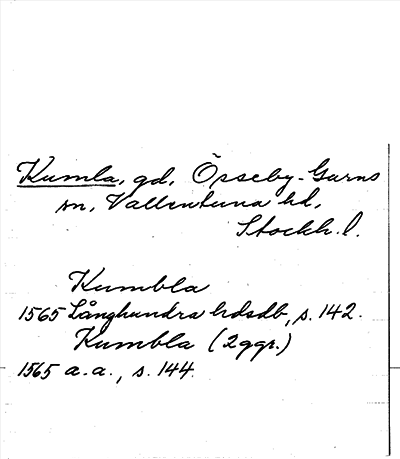 Kumla, gd, Össeby-Garns
sn, Vallentuna hd,
Stockh. l.
Kumbla
1565 Långhundra hdsdb, s. 142.
Kumbla (2 ggr.)
1565 a.a., s. 144.